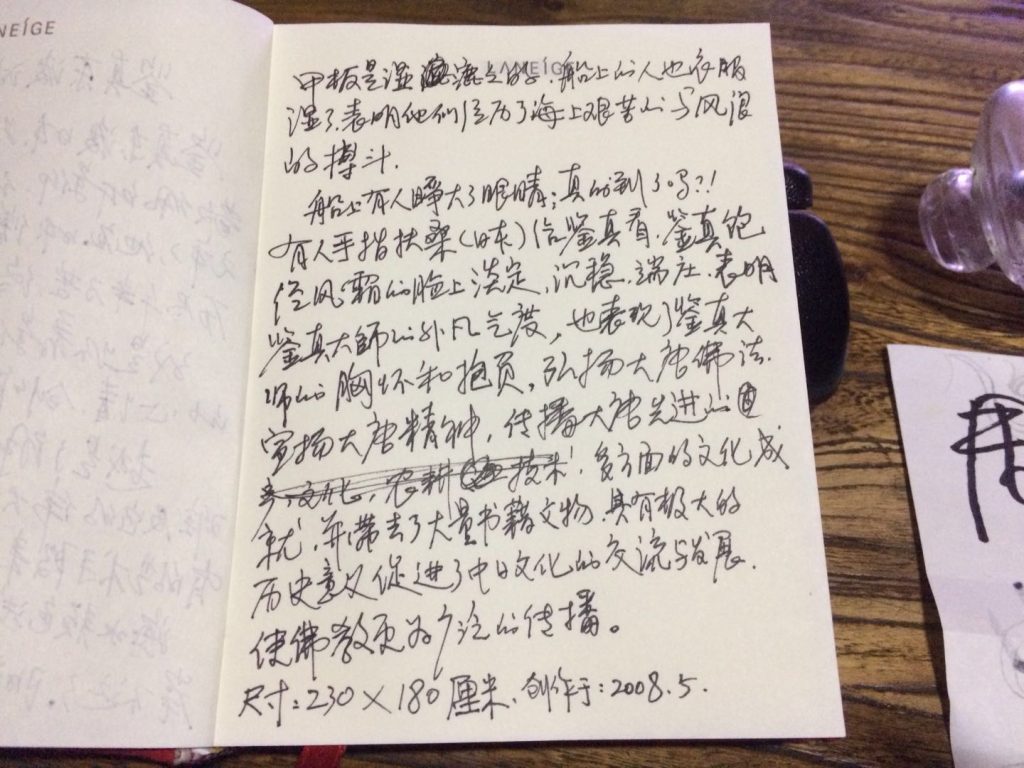 NEÍGE
LANEÍGE
甲板是湿漉漉的,船上的人也衣服
湿了.表明他们经历了海上艰苦的与风浪
的搏斗.
船上有人睁大了眼睛;真的到了吗?!
有人手指扶桑(日本)给鉴真看.鉴真饱
经风霜的脸上淡定,沉稳.端庄.表明
鉴真大师的非凡气度,也表现了鉴真大
师的胸怀和抱负,弘扬大唐佛法.
宣扬大唐精神,传播大唐先进的
多方面的文化成
就,并带去了大量书籍文物.具有极大的
历史意义促进了中日文化的交流与发展.
使佛教更为广泛的传播。
尺寸:230×180厘米.创作于:2008.5.